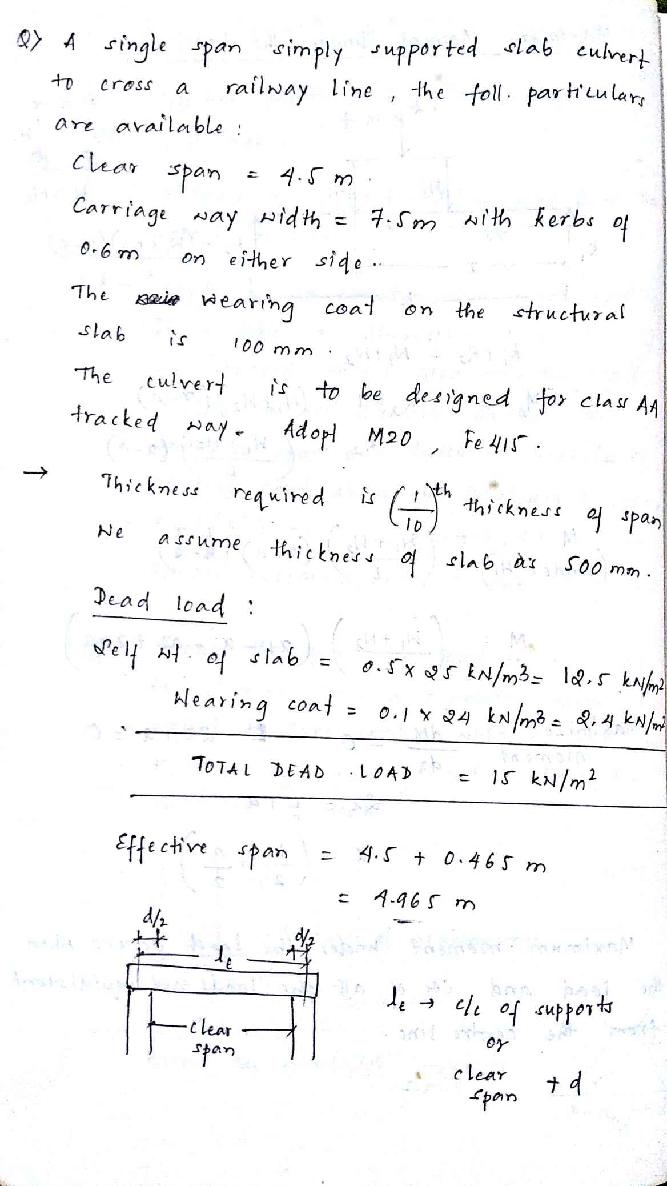 Q> A single span simply supported slab culvert
to cross a railway line, the foll. particulars
are available :
Clear span = 4.5 m.
Carriage way width = 7.5m with kerbs of
0.6 m on either side..
The wearing coat on the structural
slab is 100 mm.
The culvert is to be designed for class AA
tracked way. Adopt M20, Fe 415.
→ Thickness required is (1/10)th thickness of span
We assume thickness of slab as 500 mm.
Dead load :
Self wt. of slab = 0.5 x 25 kN/m3 = 12.5 kN/m2
Wearing coat = 0.1 x 24 kN/m3 = 2.4 kN/m2
TOTAL DEAD LOAD = 15 kN/m2
Effective span = 4.5 + 0.465 m
= 4.965 m
d/2
d/2
le
le → c/c of supports
or
clear span + d
clear
span